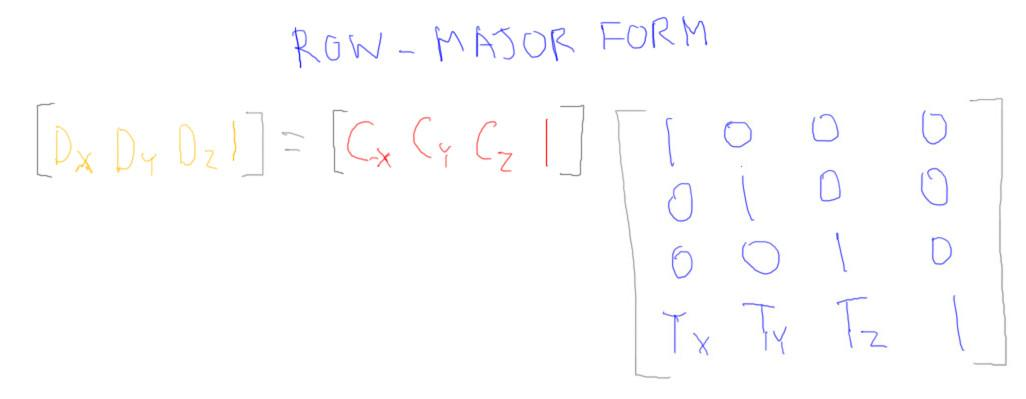 ROW-MAJOR FORM
[Dx Dy Dz 1] = [Cx Cy Cz 1] [1 0 0 0
0 1 0 0
0 0 1 0
Tx Ty Tz 1]